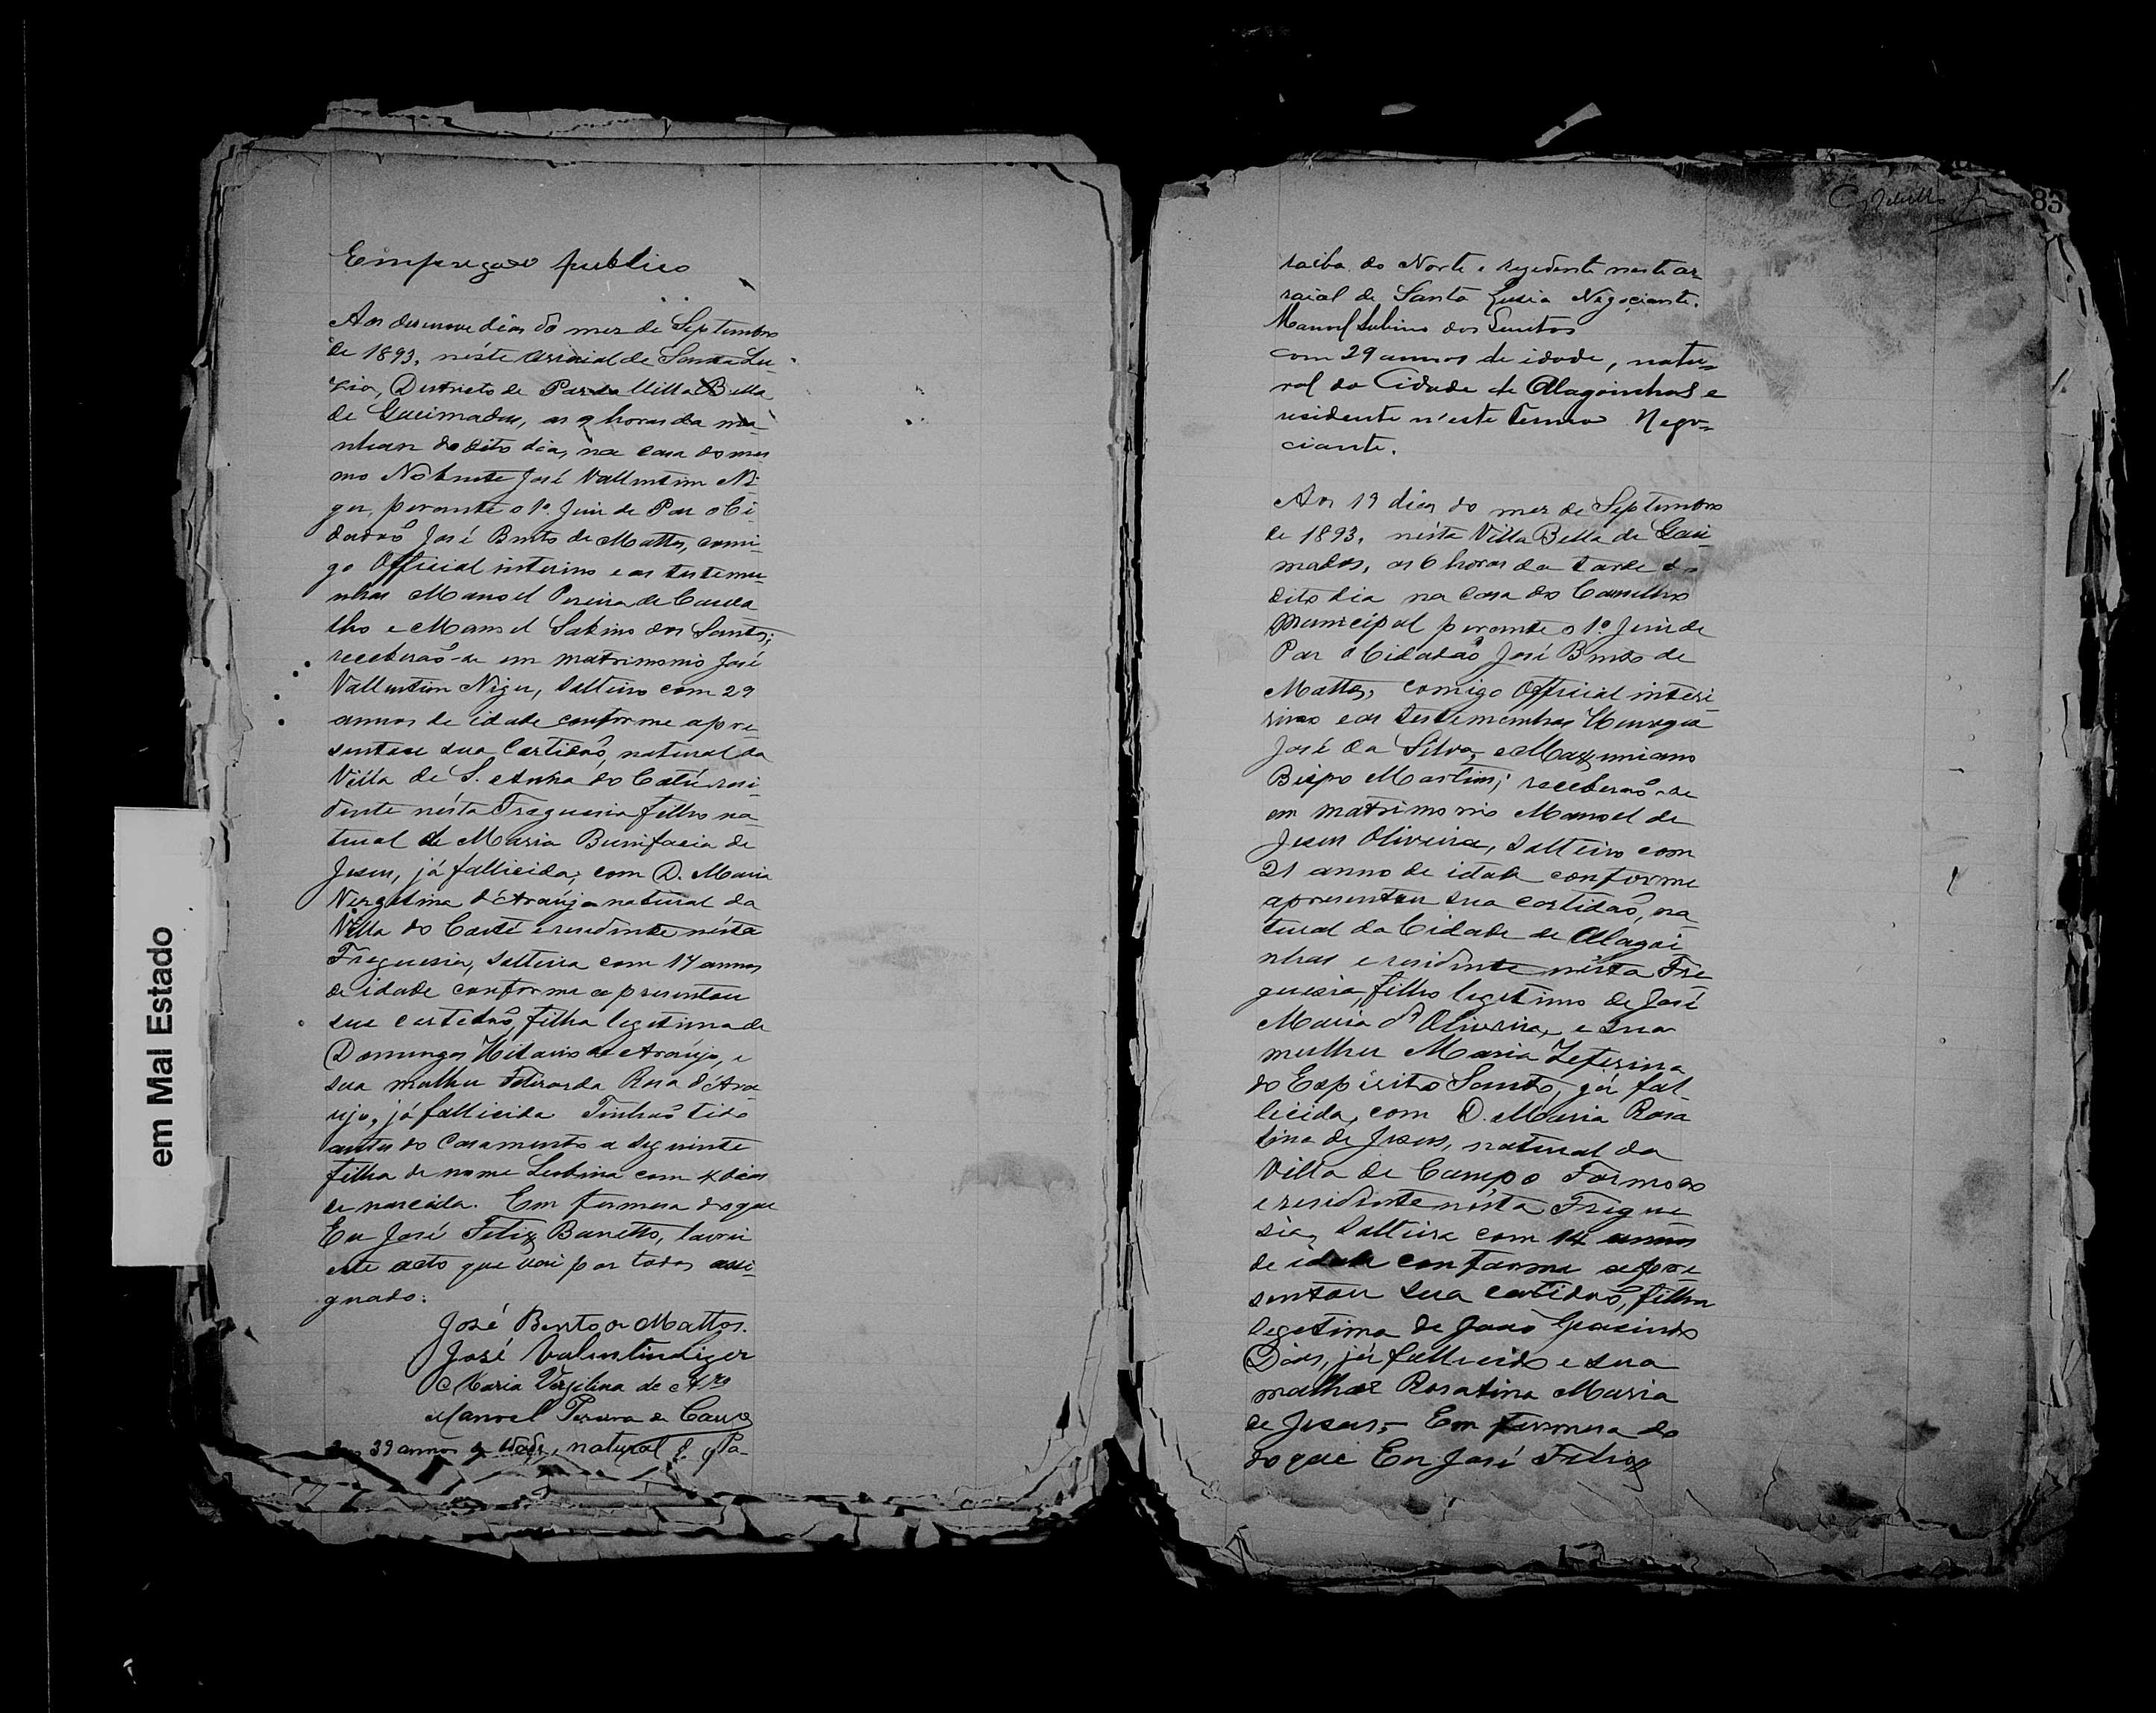 em Mal Estado
Empregado publico
Aos desenove dias do mez de Septembro
de 1893, néste arraial de Santa Lu-
zia, Districto de Paz da Villa Bella
de Queimadas, as 9 horas da ma-
nhan do dito dia, na casa do mes
mo José Vallentim Ni-
ger, perante o 1º. Juiz de Paz o Ci-
dadaõ José Bento de Mattos, comi-
go Official interino e as testemu-
nhas Manoel Pereira de Carva-
lho e Manoel Sabino dos Santos;
receberaõ-se em matrimonio José
Vallentim Niger, solteiro com 29
annos de idade conforme apre-
sentou sua Certidaõ, natural da
Villa de S. Anna do Catú resi-
dente nésta Freguesia filho na-
tural de Maria Bunifacia de
Jesus, já fallicida; com D. Maria
Vergelina d'Araújo natural da
Villa do Catú e residente nésta
Freguesia, solteira com 17 annos
de idade conforme apresentou
sua certidaõ, filha legitima de
Domingos Hilario de Araújo, e
sua mulher Rosa d'Ara
ujo, já fallicida Tinhaõ tido
antes do Casamento a seguinte
filha de nome com dias
de nascida. Em firmesa do que
Eu José Felix Baretto, lavrei
este acto que vai por todos assi-
gnado.
José Bento de Mattos.
José Valentim Liger
Maria Vergilina de Arº
Manoel Pereira de Carvº
39 annos de idade, natural da Pa-
83
raiba do Norte e rezedente neste ar
raial de Santa Luzia Negociante.
Manoel Sabino dos Santos
com 29 annos de idade, natu-
ral da Cidade de Alagoinhas e
residente n'este Termo Nego-
ciante.
Aos 19 dias do mez de Septembro
de 1893, nésta Villa Bella de Quei-
madas, as 6 horas da tarde do
dito dia na casa do Conselho
Municipal perante o 1º Juiz de
Paz o Cidadaõ José Bento de
Mattos, comigo Official inte-
rino e as testemunhas
José da Silva, e Maxzimiano
Bispo Martins; receberaõ-se
em matrimonio Manoel de
Jesus Oliveira, solteiro com
21 anno de idade conforme
apresentou sua certidaõ, na-
tural da Cidade de Alagoi
nhas e residente nésta Fre
guesia, filho legitimo de José
Maria d'Oliveira, e sua
mulher Maria Zeferina
do Espirito Santo, já fal-
licida, com D. Maria Rosa
lina de Jesus, natural da
Villa de Campo Formoso
e residente nésta Fregue
sia, solteira com 14 annos
de idade conforme apre-
sentou sua certidaõ, filha
legitima de Joaõ
Dias, já fallicido e sua
mulher Rosalina Maria
de Jesus;- Em firmesa do
do que Eu José Felix